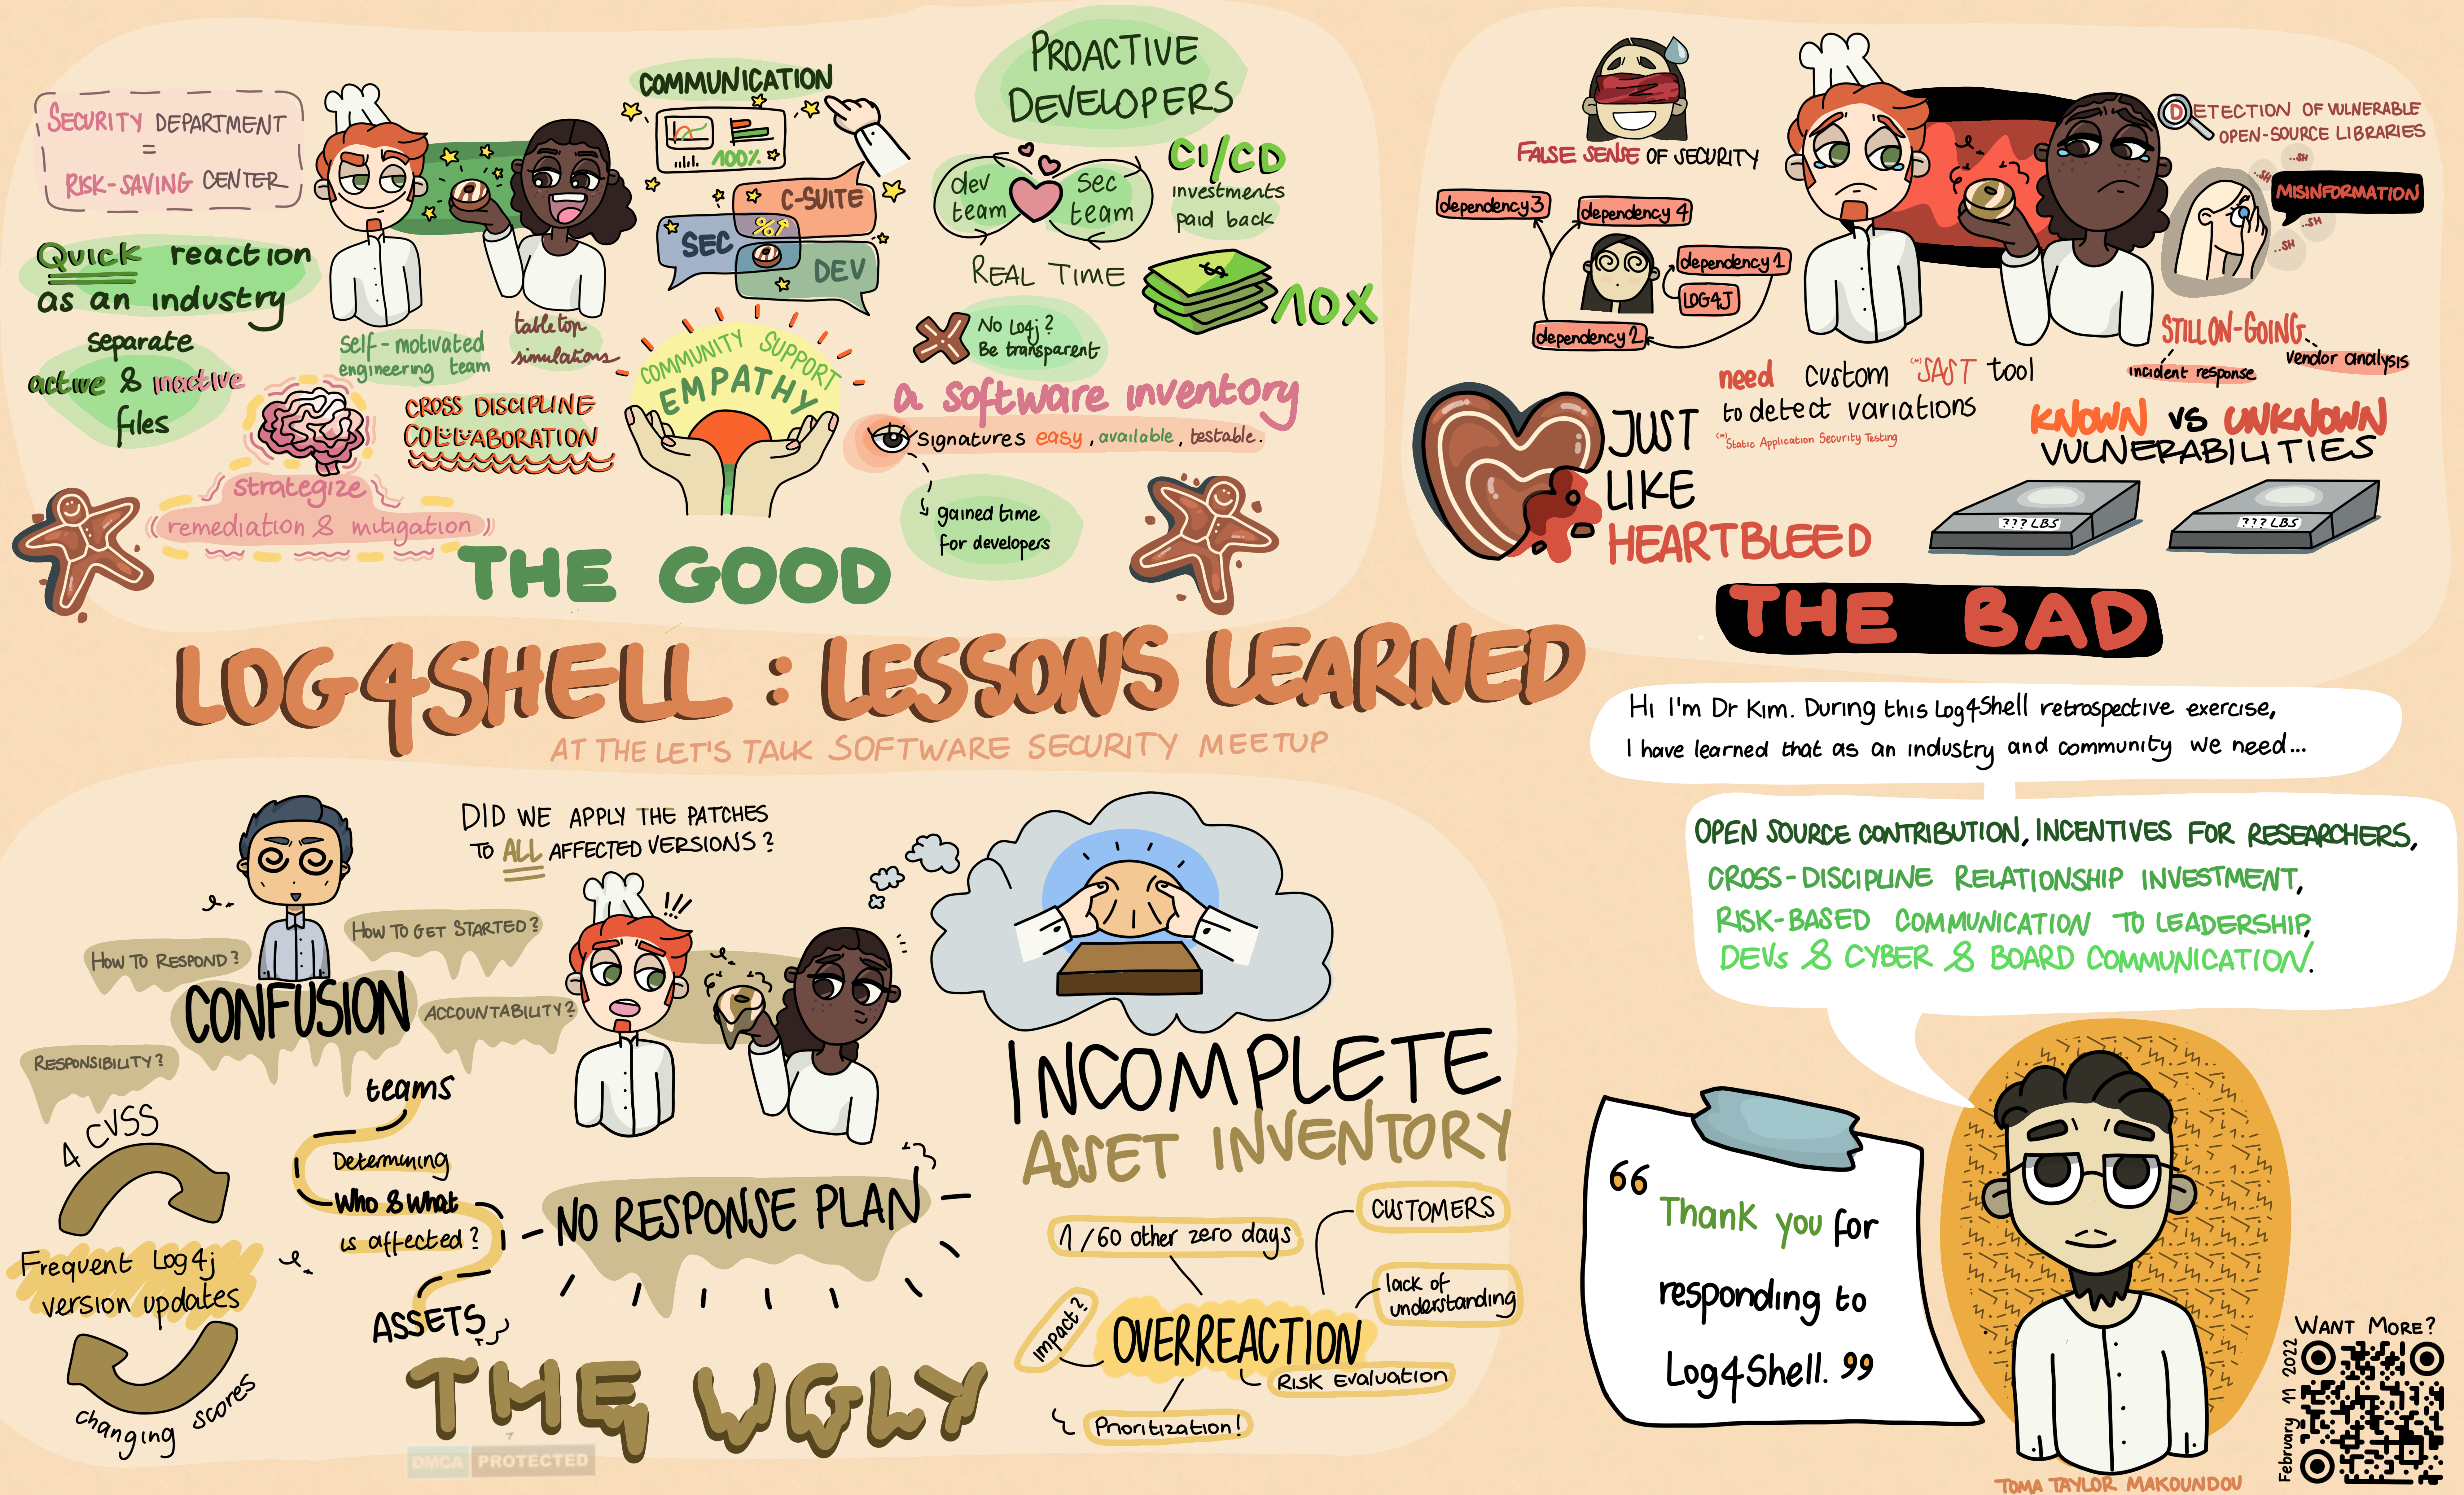 SECURITY DEPARTMENT
=
RISK-SAVING CENTER
Quick reaction
as an industry
separate
active & inactive
files
self-motivated
engineering team
tabletop
simulations
strategize
remediation & mitigation
CROSS DISCIPLINE
COLLABORATION
COMMUNICATION
100%
C-SUITE
SEC
%
DEV
COMMUNITY SUPPORT
EMPATHY
PROACTIVE
DEVELOPERS
dev
team
sec
team
REAL TIME
CI/CD
investments
paid back
$
10X
No Log4j?
Be transparent
a software inventory
signatures easy, available, testable.
gained time
for developers
THE GOOD
FALSE SENSE OF SECURITY
dependency 3
dependency 4
dependency 1
LOG4J
dependency 2
DETECTION OF VULNERABLE
OPEN-SOURCE LIBRARIES
..SH
..SH
MISINFORMATION
..SH
..SH
STILL ON-GOING
incident response
vendor analysis
need custom (*)SAST tool
to detect variations
(*)Static Application Security Testing
JUST
LIKE
HEARTBLEED
KNOWN VS UNKNOWN
VULNERABILITIES
??? LBS
??? LBS
THE BAD
LOG4SHELL : LESSONS LEARNED
AT THE LET'S TALK SOFTWARE SECURITY MEETUP
Hi I'm Dr Kim. During this Log4Shell retrospective exercise,
I have learned that as an industry and community we need...
OPEN SOURCE CONTRIBUTION, INCENTIVES FOR RESEARCHERS,
CROSS-DISCIPLINE RELATIONSHIP INVESTMENT,
RISK-BASED COMMUNICATION TO LEADERSHIP,
DEVs & CYBER & BOARD COMMUNICATION.
DID WE APPLY THE PATCHES
TO ALL AFFECTED VERSIONS?
HOW TO RESPOND?
HOW TO GET STARTED?
CONFUSION
ACCOUNTABILITY?
RESPONSIBILITY?
!!!
4 CVSS
Frequent Log4j
version updates
changing scores
teams
Determining
Who & what
is affected?
ASSETS
NO RESPONSE PLAN
INCOMPLETE
ASSET INVENTORY
1/60 other zero days
CUSTOMERS
lack of
understanding
Impact?
OVERREACTION
RISK Evaluation
Prioritization!
THE UGLY
DMCA PROTECTED
“ Thank you for
responding to
Log4Shell. ”
WANT MORE?
February 11 2022
TOMA TAYLOR MAKOUNDOU